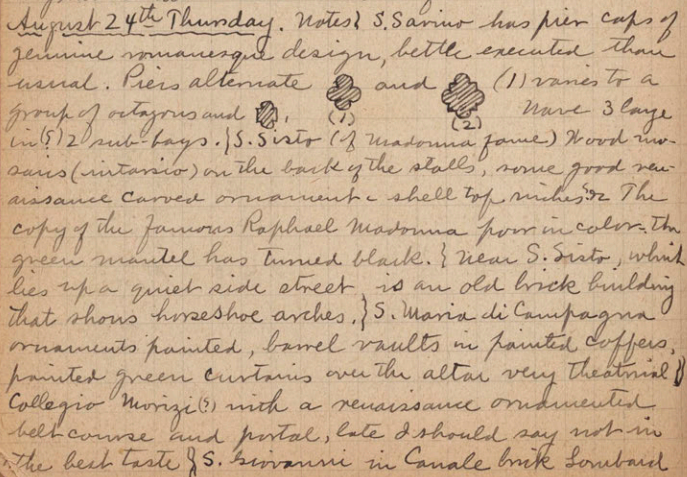 August 24th Thursday. Notes} S. Savino has pier caps of
genuine romanesque design, bettle executed than
usual. Piers alternate and (1) varies to a
group of octagons and , (1) (2) Nave 3 large
in (?) 12 sub-bays. } S. Sisto (of Madonna fame) Wood mo-
saics (intarsio) on the back of the stalls, some good ren-
aissance carved ornament c shell top niches &c The
copy of the famous Raphael Madonna poor in color - the
green mantel has turned black. } Near S. Sisto, which
lies up a quiet side street, is an old brick building
that shows horseshoe arches. } S. Maria di Campagna
ornaments painted, barrel vaults in painted coffers,
painted green curtains over the altar very theatrical }
Collegio Morizi (?) with a renaissance ornamented
belt course and portal, late I should say not in
the best taste } S. Giovanni in Canale brick Lombard